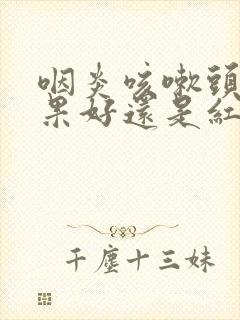 咽炎咳嗽頭
果好還是紅
千塵十三妹